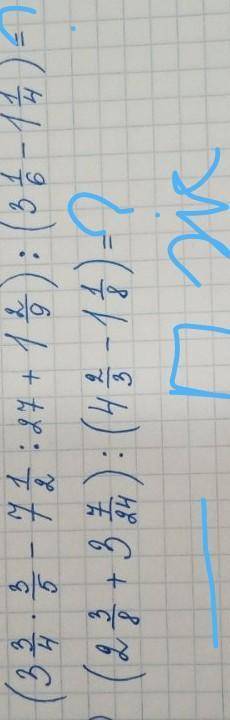 (3 3/4 · 3/5 - 7 1/2 : 27 + 1 2/9) : (3 1/6 - 1 1/4) = ?
(2 3/8 + 3 7/24) : (4 2/3 - 1 1/8) = ?